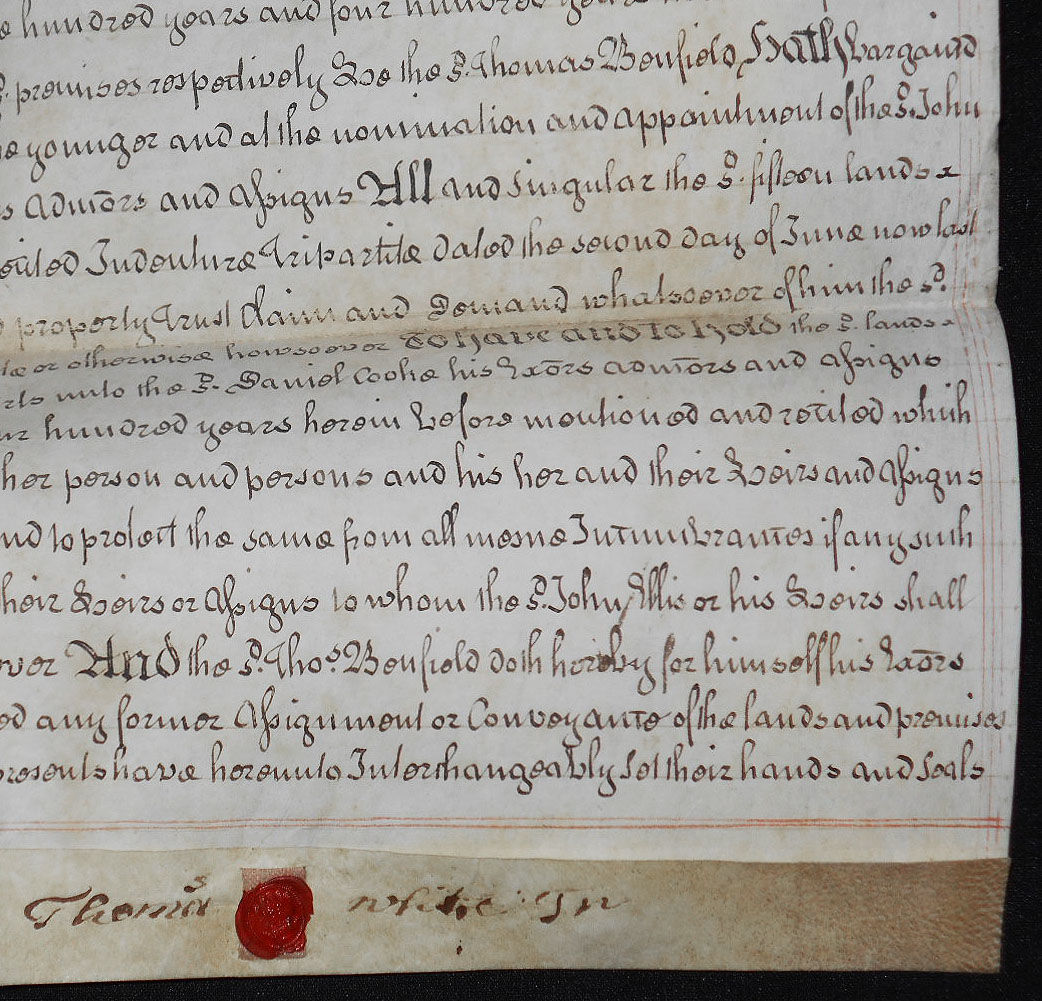 hundred years and four hundred years
s.d premises respectively & we the s.d Thomas Benfield Hath bargain'd
younger and at the nomination and appointment of the s.d John
s Adm̄ors and Assigns All and Singular the s.d fifteen lands
recited Indenture Tripartite dated the second day of June now last
property Trust Claim and Demand whatsoever of him the s.d
or otherwise howsoever To have and to hold the s.d lands
unto the s.d Daniel Cooke his Exōrs adm̄ors and assigns
hundred years herein before mentioned and recited which
her person and persons and his her and their Heirs and Assigns
and to protect the same from all mesne Incumbrances if any such
their Heirs or Assigns to whom the s.d John Ellis or his Heirs shall
And the s.d Tho.s Benfield doth hereby for himself his Exōrs
ed any former Assignment or Conveyance of the lands and premises
presents have hereunto Interchangeably set their hands and seals
Thomas white Jn